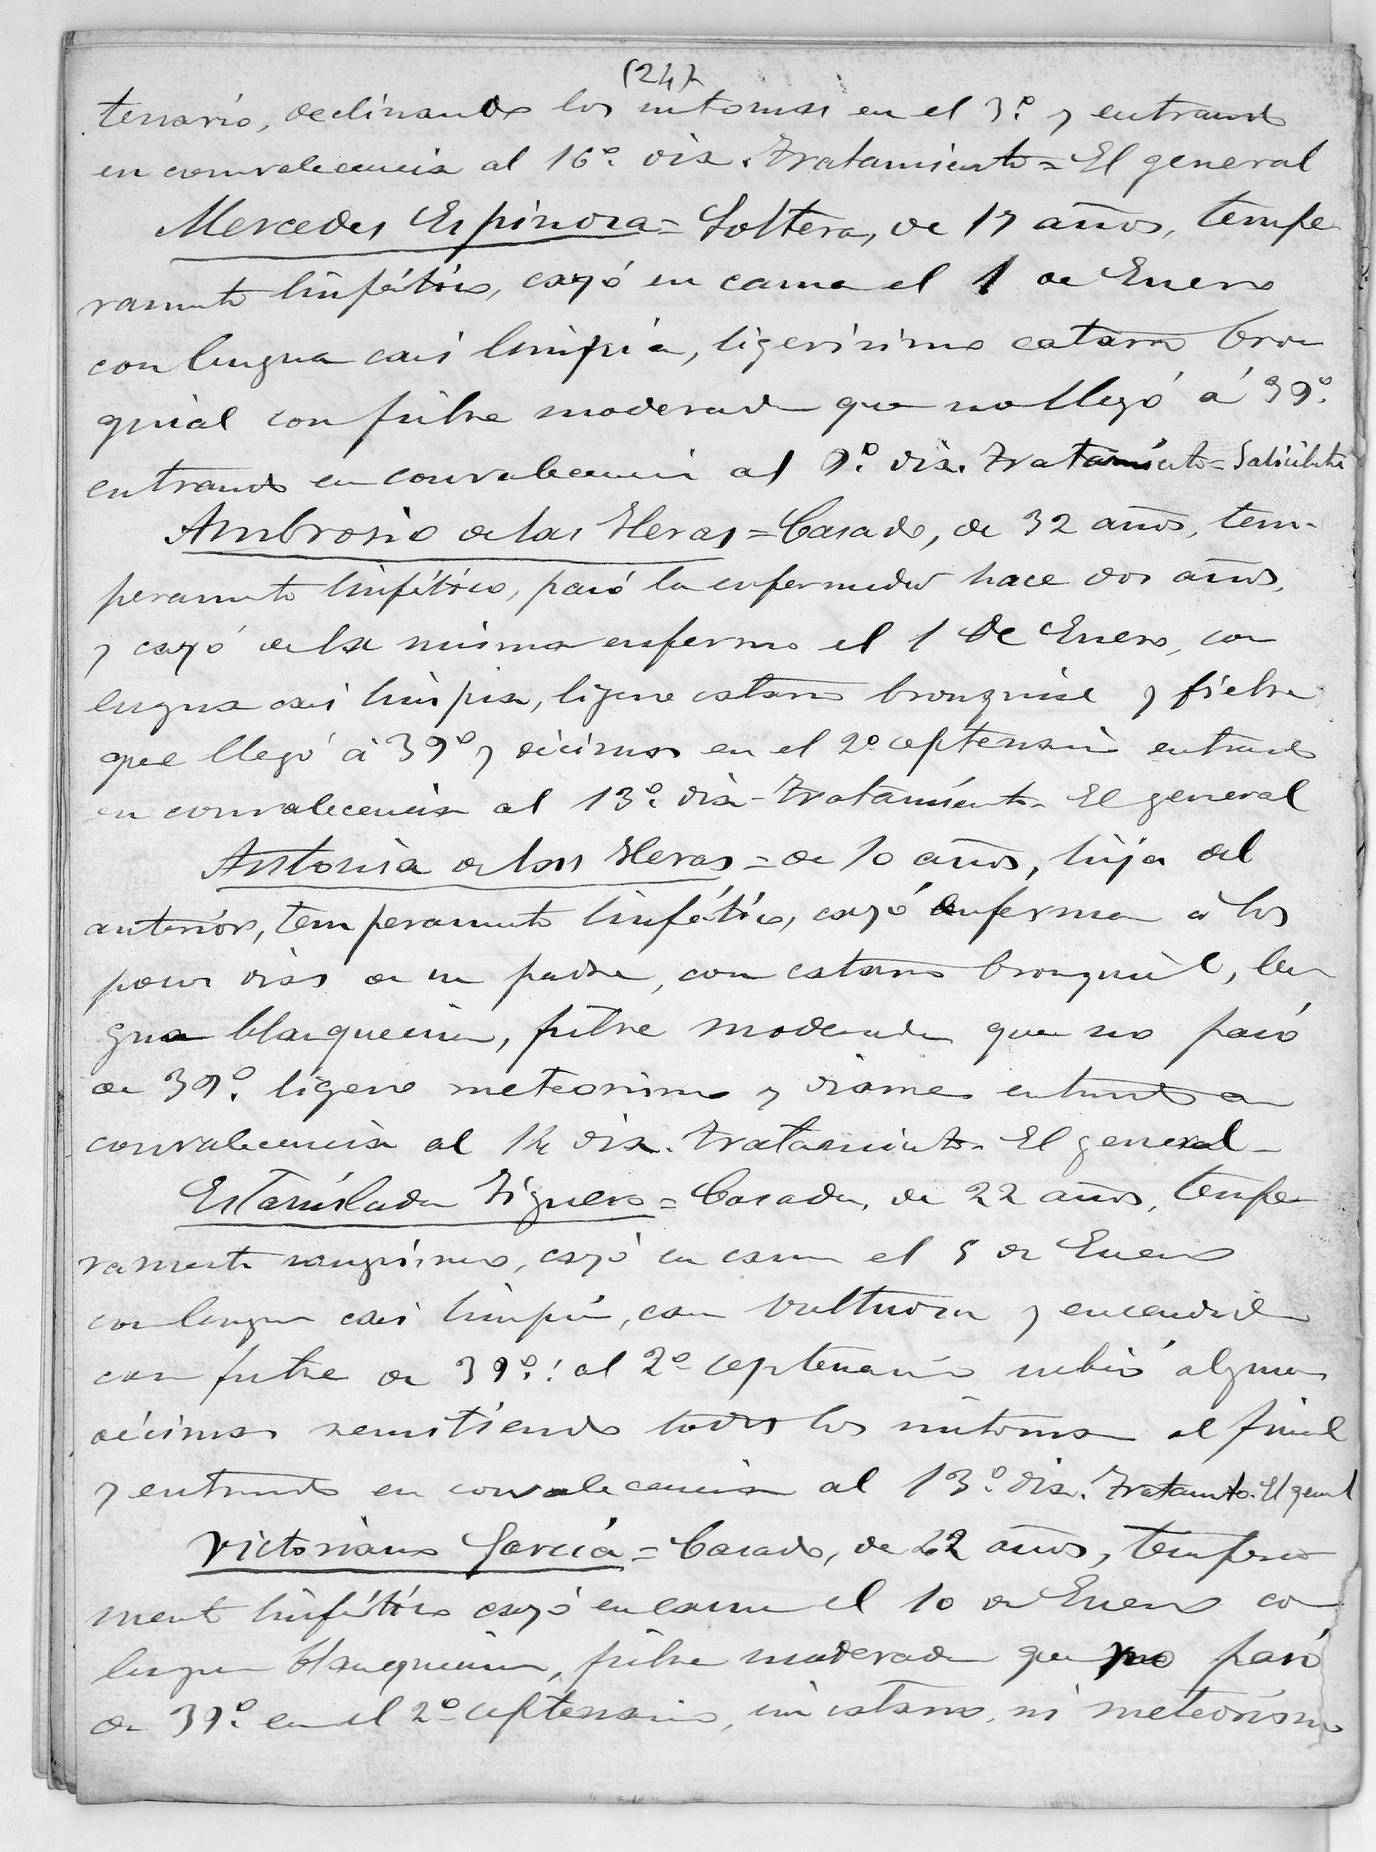 (24)
tenario, declinando los sintomas en el 3.º y entrando
en convalecencia al 16.º dia. Tratamiento = El general
Mercedes Espinosa = Soltera, de 17 años, tempe
ramento linfático, cayó en cama el 1 de Enero
con lengua casi limpia, ligerisimo catarro bron
quial con fiebre moderada que no llegó á 39.º
entrando en convalecencia al 9.º dia. Tratamiento = Salicilato
Ambrosio de las Heras = Casado, de 32 años, tem-
peramento linfático, pasó la enfermedad hace dos años,
y cayó de la misma enfermo el 1 de Enero, con
lengua casi limpia, ligero catarro bronquial y fiebre
que llegó á 39º y décimas en el 2º septenario entrando
en convalecencia al 13.º dia - Tratamiento - El general
Antonia de las Heras = de 10 años, hija del
anterior, temperamento linfático, cayó enferma á los
pocos dias de su padre, con catarro bronquial, len
gua blanquecina, fiebre moderada que no pasó
de 39.º ligero meteorismo y diarrea entrando en
convalecencia al 14 dia. Tratamiento - El general -
Estanislada Figuero = Casada, de 22 años, tempe
ramento sanguineo, cayó en cama el 5 de Enero
con lengua casi limpia, cara vultuosa y encendida
con fiebre de 39.º: al 2º septenario subió algunas
décimas remitiendo todos los sintomas al final
y entrando en convalecencia al 13.º dia. Tratamto. El genal
Victoriano García = Casado, de 22 años, tempera
mento linfático cayó en cama el 10 de Enero con
lengua blanquecina, fiebre moderada que no pasó
de 39.º en el 2º septenario, sin catarro, ni meteorismo